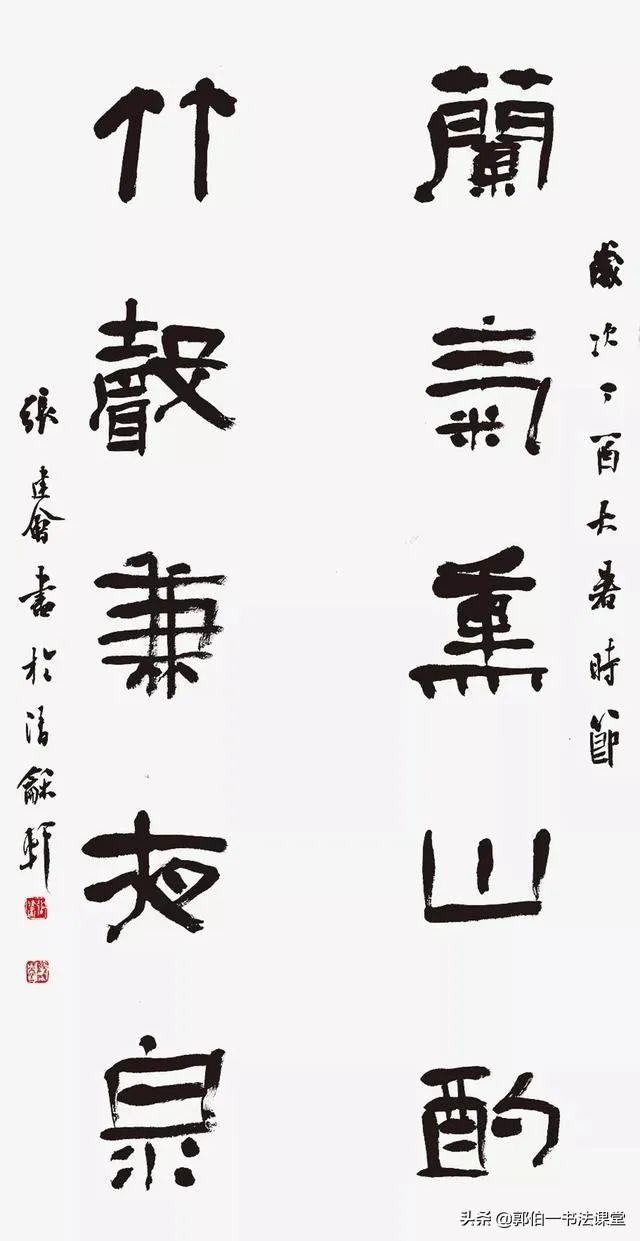 歲次丁酉大暑時節
蘭氣熏山酌
竹聲兼夜泉
張建會書於清龢軒
头条 @郭伯一书法课堂